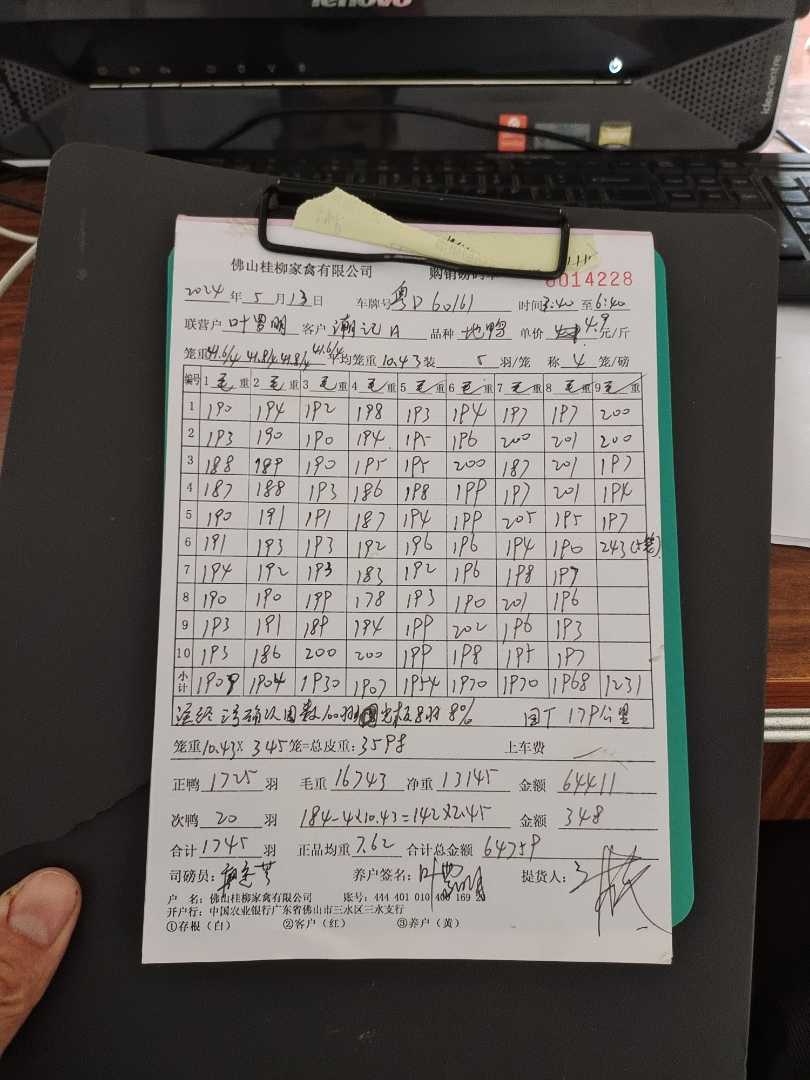 lenovo
ideacentre
佛山桂柳家禽有限公司 购销磅码单
0014228
2024年5月13日 车牌号 粤D60161 时间3:40至6:40
联营户 叶罗明 客户 潮记A 品种 地鸭 单价 4.9 元/斤
笼重 41.6/4 41.8/4 41.8/4 41.6/4 平均笼重10.43 装 5 羽/笼 称 4 笼/磅
编号 1毛重 2毛重 3毛重 4毛重 5毛重 6毛重 7毛重 8毛重 9毛重
1 190 194 192 198 193 194 197 197 200
2 193 190 190 194 195 196 200 201 200
3 188 189 190 195 195 200 187 201 197
4 187 188 193 186 198 199 197 201 194
5 190 191 191 187 194 199 205 195 197
6 191 193 193 192 196 196 194 190 243(5笼)
7 194 192 193 183 192 196 198 197
8 190 190 199 178 193 190 201 196
9 193 191 189 194 199 202 196 193
10 193 186 200 200 199 198 195 197
小计 1909 1904 1930 1907 1954 1970 1970 1968 1231
羽 8% 回厂 179公里
笼重10.43×345笼=总皮重:3598 上车费
正鸭 1725 羽 毛重 16743 净重 13145 金额 64411
次鸭 20 184-4×10.43=142×2.45 金额 348
合计 1745 羽 正品均重 7.62 合计总金额 64759
司磅员: 养户签名: 提货人:
户 名:佛山桂柳家禽有限公司 账号:444 401 010 400 169
开户行:中国农业银行广东省佛山市三水区三水支行
①存根(白) ②客户(红) ③养户(黄)